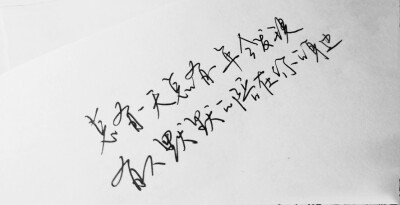 总有一天总有一年会发现
有人默默的陪在你的身边